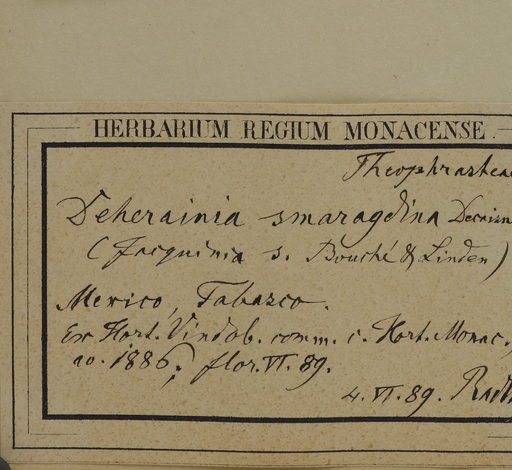 HERBARIUM REGIUM MONACENSE.
Theophrasteae
Deherainia smaragdina Decaisn
(Jacquinia s. Bouché & Linden)
Mexico, Tabasco.
Ex Hort. Vindob. comm. c. Hort. Monac.,
ao. 1886; flor. VI. 89.
4. VI. 89. Radlk